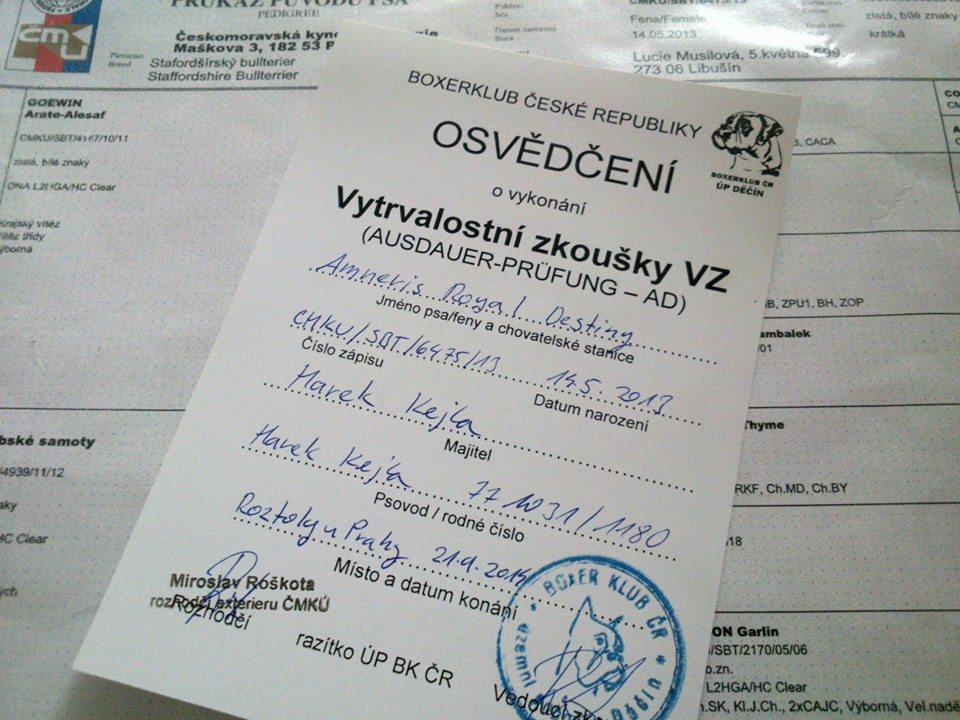 PRŮKAZ PŮVODU PSA
PEDIGREE
ČMKU
Českomoravská
Maškova 3, 182 53 P
Plemeno
Breed
Stafordšírský bullterier
Staffordshire Bullterrier
Pohlaví
Sex
Datum narození
Born
Fena/Female
14.05.2013
Lucie Musilová, 5.května 599
273 06 Libušín
zlatá, bílé znaky
krátká
GOEWIN
Arate-Alesaf
CMKU/SBT/4187/10/11
zlatá, bílé znaky
DNA L2HGA/HC Clear
Krajský vítěz
třídy
bské samoty
4939/11/12
HC Clear
BOXERKLUB ČESKÉ REPUBLIKY
BOXERKLUB ČR
ÚP DĚČÍN
OSVĚDČENÍ
o vykonání
Vytrvalostní zkoušky VZ
(AUSDAUER-PRÜFUNG – AD)
Amneris Royal Destiny
Jméno psa/feny a chovatelské stanice
CMKU/SBT/6475/13 14.5. 2013
Číslo zápisu Datum narození
Marek Kejla
Majitel
Marek Kejla 771031/1180
Psovod / rodné číslo
Roztoky u Prahy
Místo a datum konání
Miroslav Róškota
rozhodčí exterieru ČMKÚ
Rozhodčí
razítko ÚP BK ČR
BOXER KLUB ČR
Vedoucí
, CACA
, ZPU1, BH, ZOP
ambalek
/01
Thyme
RKF, Ch.MD, Ch.BY
ON Garlin
/SBT/2170/05/06
L2HGA/HC Clear
h.SK, Kl.J.Ch., 2xCAJC, Výborná, Vel.nadě